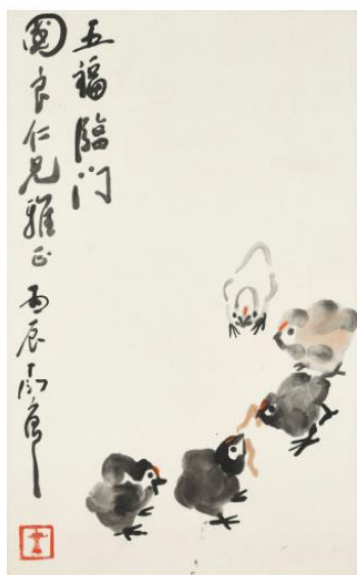 五福臨门
國良仁兄雅正 丙辰